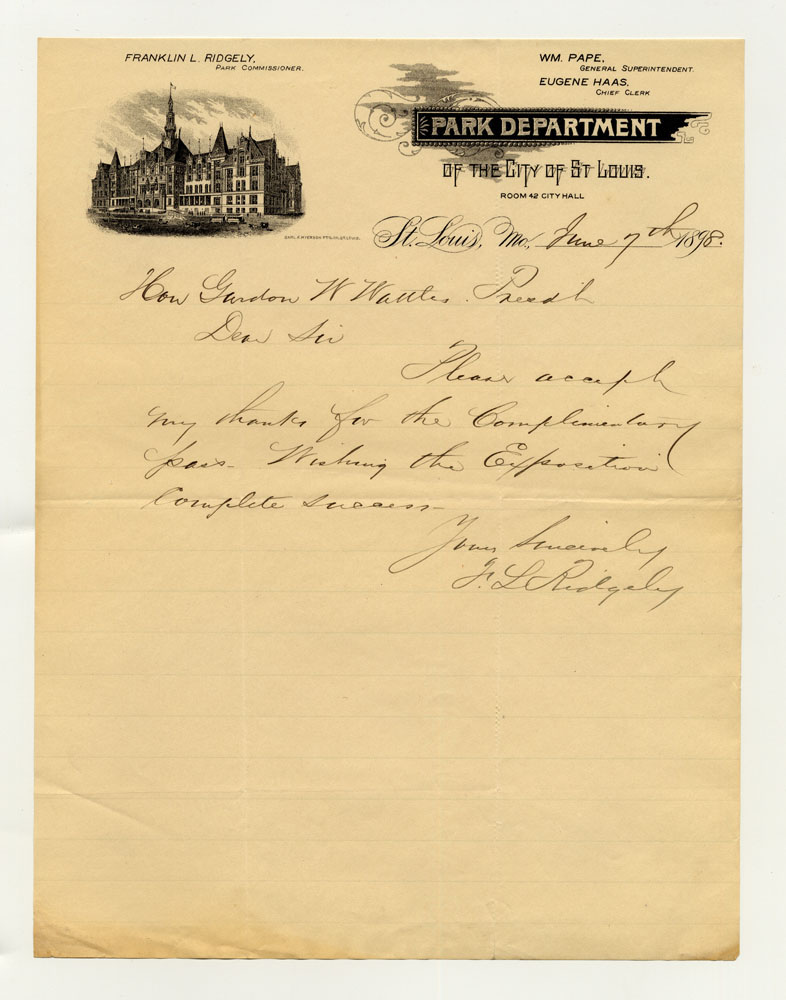 FRANKLIN L. RIDGELY,
PARK COMMISSIONER.
WM. PAPE,
GENERAL SUPERINTENDENT.
EUGENE HAAS,
CHIEF CLERK
PARK DEPARTMENT
OF THE CITY OF ST LOUIS.
ROOM 42 CITY HALL
St. Louis, Mo., June 7th 1898.
Hon Gurdon W Wattles. Presdt
Dear Sir
Please accept
my thanks for the Complimentary
pass. Wishing the Exposition
Complete success
Yours Sincerely
F. L. Ridgely